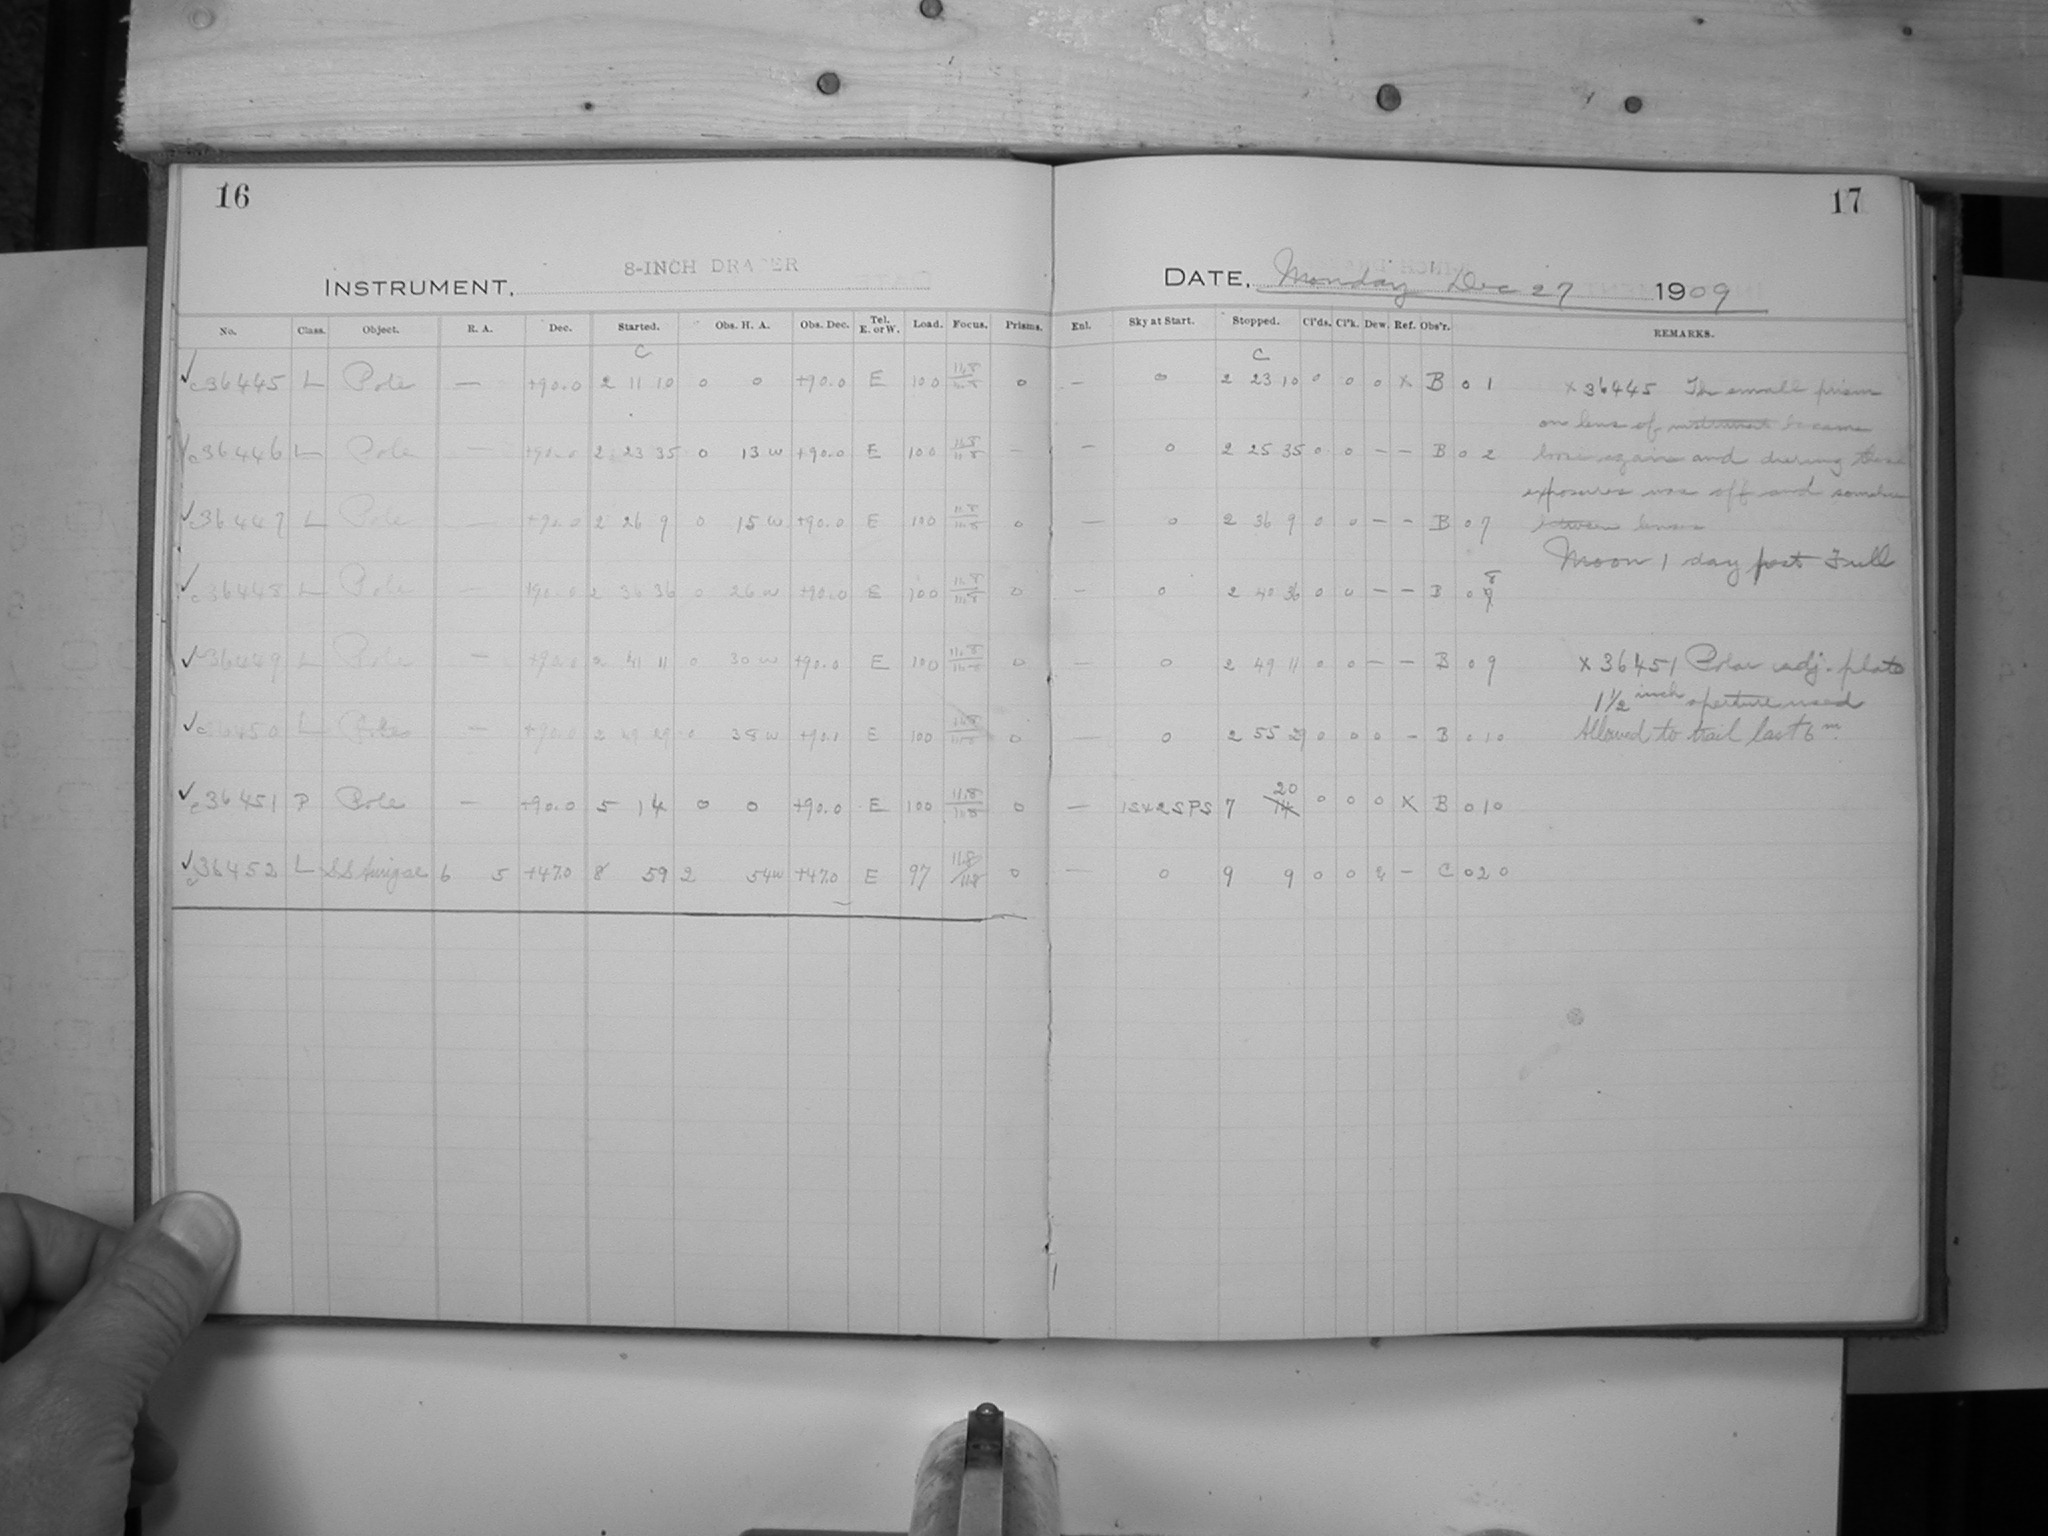 16
17
8-INCH DRAPER
INSTRUMENT,
DATE, Monday Dec 27 1909
No. Class. Object. R. A. Dec. Started. Obs. H. A. Obs. Dec. Tel. E. or W. Load. Focus. Prisms. Enl. Sky at Start. Stopped. Cl'ds. Cl'k. Dew. Ref. Obs'r. REMARKS.
C C
✓ c36445 L Pole — +90.0 2 11 10 0 0 +90.0 E 100 11.8/11.8 0 — 0 2 23 10 0 0 0 x B 0 1
✓ c36446 L Pole — +90.0 2 23 35 0 13 w +90.0 E 100 11.8/11.8 — — 0 2 25 35 0 0 — — B 0 2
✓ c36447 L Pole — +90.0 2 26 9 0 15 w +90.0 E 100 11.8/11.8 0 — 0 2 36 9 0 0 — — B 0 7
✓ c36448 L Pole — +90.0 2 36 36 0 26 w +90.0 E 100 11.8/11.8 0 — 0 2 40 36 0 0 — — B 0 8
✓ 36449 L Pole — +90.0 2 41 11 0 30 w +90.0 E 100 11.8/11.8 0 — 0 2 49 11 0 0 — — B 0 9
✓ c36450 L Pole — +90.0 2 49 29 0 38 w +90.0 E 100 11.8/11.8 0 — 0 2 55 29 0 0 0 — B 0 10
✓ c36451 P Pole — +90.0 5 14 0 0 +90.0 E 100 11.8/11.8 0 — 1S+2SPS 7 20 0 0 0 X B 0 10
✓ c36452 L SS Aurigae 6 5 +47.0 8 59 2 54w +47.0 E 97 11.8/11.8 0 — 0 9 9 0 0 — C 0 2 0
x 36445 The small prism
on lens of instrument became
loose again and during these
exposures was off and somehow
between lenses
Moon 1 day past Full
x 36451 Polar adj. plate
1½ inch aperture used
Allowed to trail last 6 m